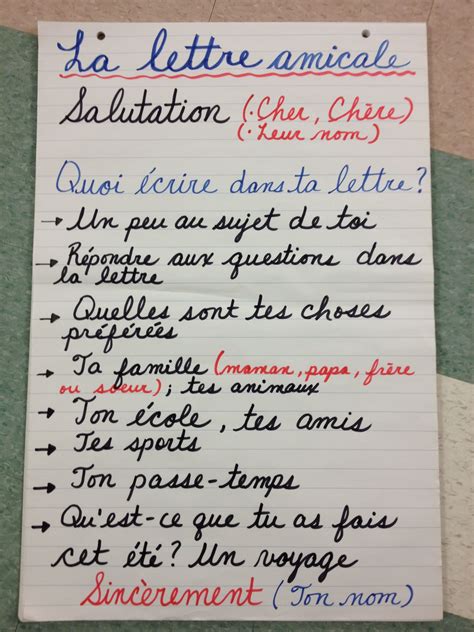 La lettre amicale
Salutation (·Cher, Chère)
(·Leur nom)
Quoi écrire dans ta lettre?
→ Un peu au sujet de toi
→ Répondre aux questions dans
la lettre
→ Quelles sont tes choses
préférées
→ Ta famille (maman, papa, frère
ou soeur); tes animaux
→ Ton école, tes amis
→ Tes sports
→ Ton passe-temps
→ Qu'est-ce que tu as fais
cet été? Un voyage
Sincèrement (Ton nom)